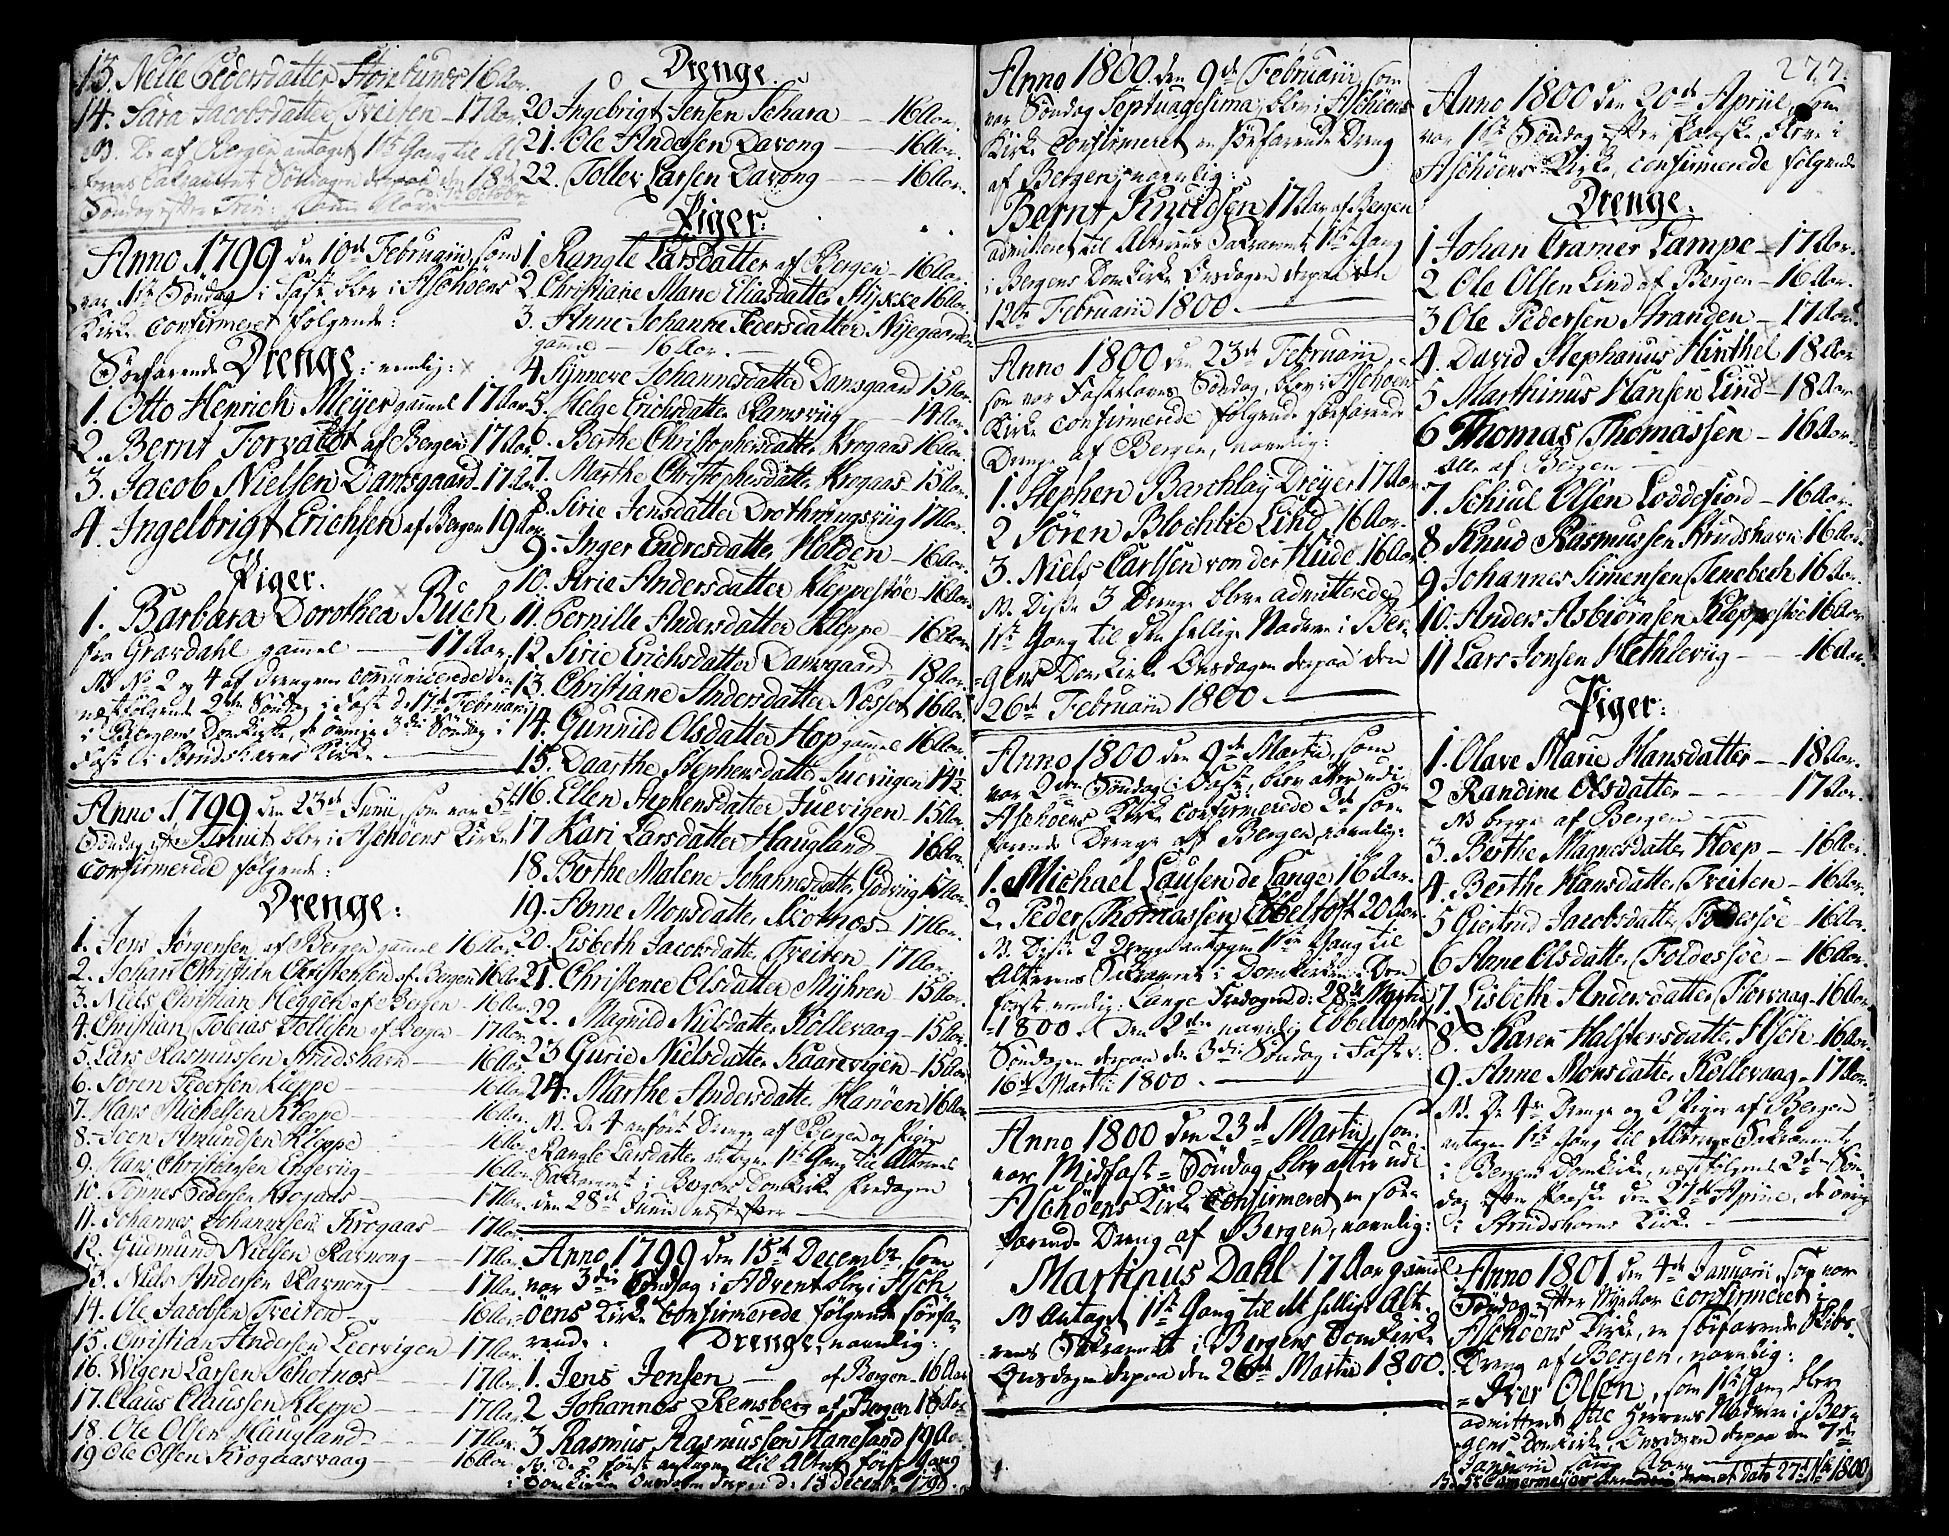 13. Nelle Pedersdatter 16 Aar.
14. Sara Jacobsdatter Tveiten - 17 Aar
NB. De af Bergen antaget 1ste Gang til Al-
Anno 1799 den 10de Februarii, som
var 1ste Søndag i Faste blev i Aschöens
Kirke Confirmeret følgende:
Söefarende Drenge: nemlig:
1. Otto Henrich Meyer gamel 17 Aar
2. Bernt af Bergen 17 Aar
3. Jacob Nielsen Damsgaard - 17 Aar
4. Ingelbrigt Erichsen af Bergen 19 Aar
Piger.
1. Barbara Dorothea Buch
fra Gravdahl gammel - 17 Aar
NB No 2 og 4 af Drengene communicerede den
næstfølgende 2den Søndag i Faste d. 17de Februarii
i Bergens Domkirke, de øvrige 3die Søndag i
Faste i Strudshavns Kirke.
Anno 1799 den 23de Junii, som var 5te
Søndag efter Trinit. blev i Aschöens Kirke
Confirmerede følgende:
Drenge:
1. Jens Jörgensen af Bergen gammel 16 Aar.
2. Johan Christian Christensen af Bergen 16 Aar
3. Niels Christian Heggöe af Bergen - 16 Aar.
4. Christian Tobias Tollefsen af Bergen - 17 Aar.
5. Lars Rasmussen Strudshavn - 16 Aar.
6. Sören Pedersen Kleppe - 16 Aar.
7. Hans Michelsen Kleppe - 16 Aar.
8. Joen Amundsen Kleppe - 16 Aar.
9. Hans Christensen - 16 Aar.
10. Tönnes Pedersen Krogaas - 17 Aar.
11. Johannes Johannesen Krogaas - 17 Aar.
12. Gudmund Nielsen Ravnong - 17 Aar.
13. Niels Andersen Ravnong - 17 Aar.
14. Ole Jacobsen Tveiten - 16 Aar.
15. Christian Andersen Leervigen - 17 Aar.
16. Wigen Larsen Schotnos - 17 Aar.
17. Claus Claussen Kleppe - 17 Aar.
18. Ole Olsen Haugland - 17 Aar.
19 Ole Olsen Krogaasvaag - 16 Aar.
Drenge.
20 Ingebrigt Jensen Schara - 16 Aar.
21. Ole Andersen Davong - 16 Aar.
22. Tollev Larsen Davong - 16 Aar.
Piger:
1. Rangle Larsdatter af Bergen - 16 Aar.
2. Christiane Marie Eliasdatter 16 Aar.
3. Anne Johanne Pedersdatter Nyegaarden
gamel - 16 Aar.
4 Synneve Johannesdatter Damsgaard 15 Aar.
5. Helge Erichsdatter Ramsviig 14 Aar.
6. Berthe Christophersdatter Krogaas 16 Aar.
7. Marthe Christophersdatter Krogaas - 15 Aar.
8. Sirie Jensdatter Drothningsviig 17 Aar.
9. Inger Endresdatter Holden - 16 Aar.
10. Sirie Andersdatter Kleppestöe - 16 Aar
11. Pernille Andersdatter Kleppe - 16 Aar
12 Sirie Erichsdatter Damsgaard 18 Aar.
13. Christiane Andersdatter Nesset 16 Aar.
14. Gunnild Olsdatter Hop gamel 16 Aar.
15. Daarthe Stephensdatter Juevigen 14½
16. Ellen Stephensdatter Juevigen - 15 Aar.
17 Kari Larsdatter Haugland - 16 Aar
18. Berthe Malene Johannesdatter Godviig 17 Aar.
19. Anne Monsdatter - 17 Aar.
20. Lisbeth Jacobsdatter Tveiten - 17 Aar.
21. Christence Olsdatter Myhren - 15 Aar.
22. Magnild Nielsdatter Kollevaag - 15 Aar.
23 Gurie Nielsdatter Kaarevigen - 15 Aar
24. Marthe Andersdatter Hanöen 16 Aar
NB. De 4 anförte Drenge af Bergen og Pigen
Rangle Larsdatter antagne 1ste Gang til Alterets
Sakramente i Bergens Domkirke Fredagen
den 28de Junii næstefter
Anno 1799 den 15de Decembr. som
var 3die Söndag i Advent blev i Asch-
öens Kirke Confirmerede følgende söefa-
rende. Drenge, navnlig:
1. Jens Jensen - af Bergen 16 Aar
2 Johannes Remsberg af Bergen 16
3 Rasmus Rasmussen Hanesand 19 Aar.
NB. De 2 første antagen til Alteret første Gang
i Domkirken Onsdagen derpaa d: 18 Decembr. 1799.
Anno 1800 den 9de Februarii, som
var Søndag Septuagesima, blev i Aschöens
Kirke Confirmeret en söefarende Dreng
af Bergen, navnlig:
Bernt Knudsen 17 Aar af Bergen
admitteret til Alterens Sakramente 1ste Gang
i Bergens Domkirke Onsdagen derpaa den
12te Februarii 1800.
Anno 1800 den 23de Februarii
som var Fastelavns Søndag, blev i Aschöens
Kirke Confirmerede følgende søefarende
Drenge af Bergen, navnlig:
1. Stephen Barchlay Dreyer 17 Aar
2 Sören Blochlie Lind 16 Aar.
3. Niels Carlsen von der Hude 16 Aar
NB. Disse 3 Drenge bleve admitterede
1ste Gang til den hellige Nadvere i Ber-
gens Domkirke Onsdagen derpaa den
26de Februarii 1800.
Anno 1800 den 9de Martii, som
var 2den Søndag i Faste, blev atter udi
Aschöens Kirke Confirmerede 2de söe-
farende Drenge af Bergen, navnlig:
1. Michael Lausen de Lange 16 Aar.
2. Peder Thomassen Ebbeltoft 20 Aar
NB. Disse 2 Drenge antagen 1ste Gang til
Alterens Sakramente i Domkirken. Den
første nemlig Lange Fredagen d: 28de Martii
1800 & den 2den navnlig Ebbeltopht
Søndagen derpaa den 3die Søndag i Faste:
16de Martii 1800.
Anno 1800 den 23de Martii, som
var Midfaste-Søndag blev atter udi
Aschöens Kirke Confirmeret en söe-
farende Dreng af Bergen, navnlig:
Martinus Dahl 17 Aar gamel
NB Antaget 1ste Gang til det hellige Alte-
rens Sakramente i Bergens Domkirke
Onsdagen derpaa den 26de Martii 1800.
277.
Anno 1800 den 20de Apriil, som
var 1ste Søndag efter Paaske, bleve i
Aschöens Kirke, confirmerede følgende
Drenge.
1 Johan Cramer Lampe - 17 Aar.
2 Ole Olsen Lind af Bergen - 16 Aar.
3 Ole Pedersen Stranden - 17 Aar.
4. David Stephanus 18 Aar
5 Marthinus Hansen Lind - 18 Aar
6 Thomas Thomassen - 16 Aar.
Alle af Bergen
7. Schiul Olsen Loddefiord - 16 Aar.
8 Knud Rasmussen Strudshavn 16 Aar.
9 Johannes Simensen Tenebech 16 Aar.
10. Anders Asbiörnsen Kleppestöe 16 Aar
11 Lars Jonsen Hethleviig - 16 Aar.
Piger:
1. Olave Marie Hansdatter - 18 Aar.
2 Randine Olsdatter - 17 Aar.
NB begge af Bergen
3. Berthe Magnesdatter Hoep - 16 Aar.
4. Berthe Hansdatter Tveiten - 16 Aar.
5 Giertrud Jacobsdatter Foldessöe - 16 Aar.
6 Anne Olsdatter Foldessöe - 16 Aar.
7. Lisbeth Andersdatter Florvaag - 16 Aar
8. Karen Halstensdatter Asch - 16 Aar.
9. Anne Monsdatter Kollevaag - 17 Aar.
NB. De Drenge og 2 Piger af Bergen
antagen 1ste Gang til Alterens Sakramente
i Bergens Domkirke, næstfølgende 2den Søn-
dag efter Paaske den 27de Apriil, de øvrige
i Strudshavns Kirke -
Anno 1801 den 4de Januarii, som var
Søndag efter Nytaar Confirmeret i
Aschöens Kirke, en söefarende Skibs-
Dreng af Bergen, navnlig:
Iver Olsen, som 1ste Gang blev
admitteret til Herrens Nadvere i Ber-
gens Domkirke, Onsdagen derpaa den 7de
Januarii